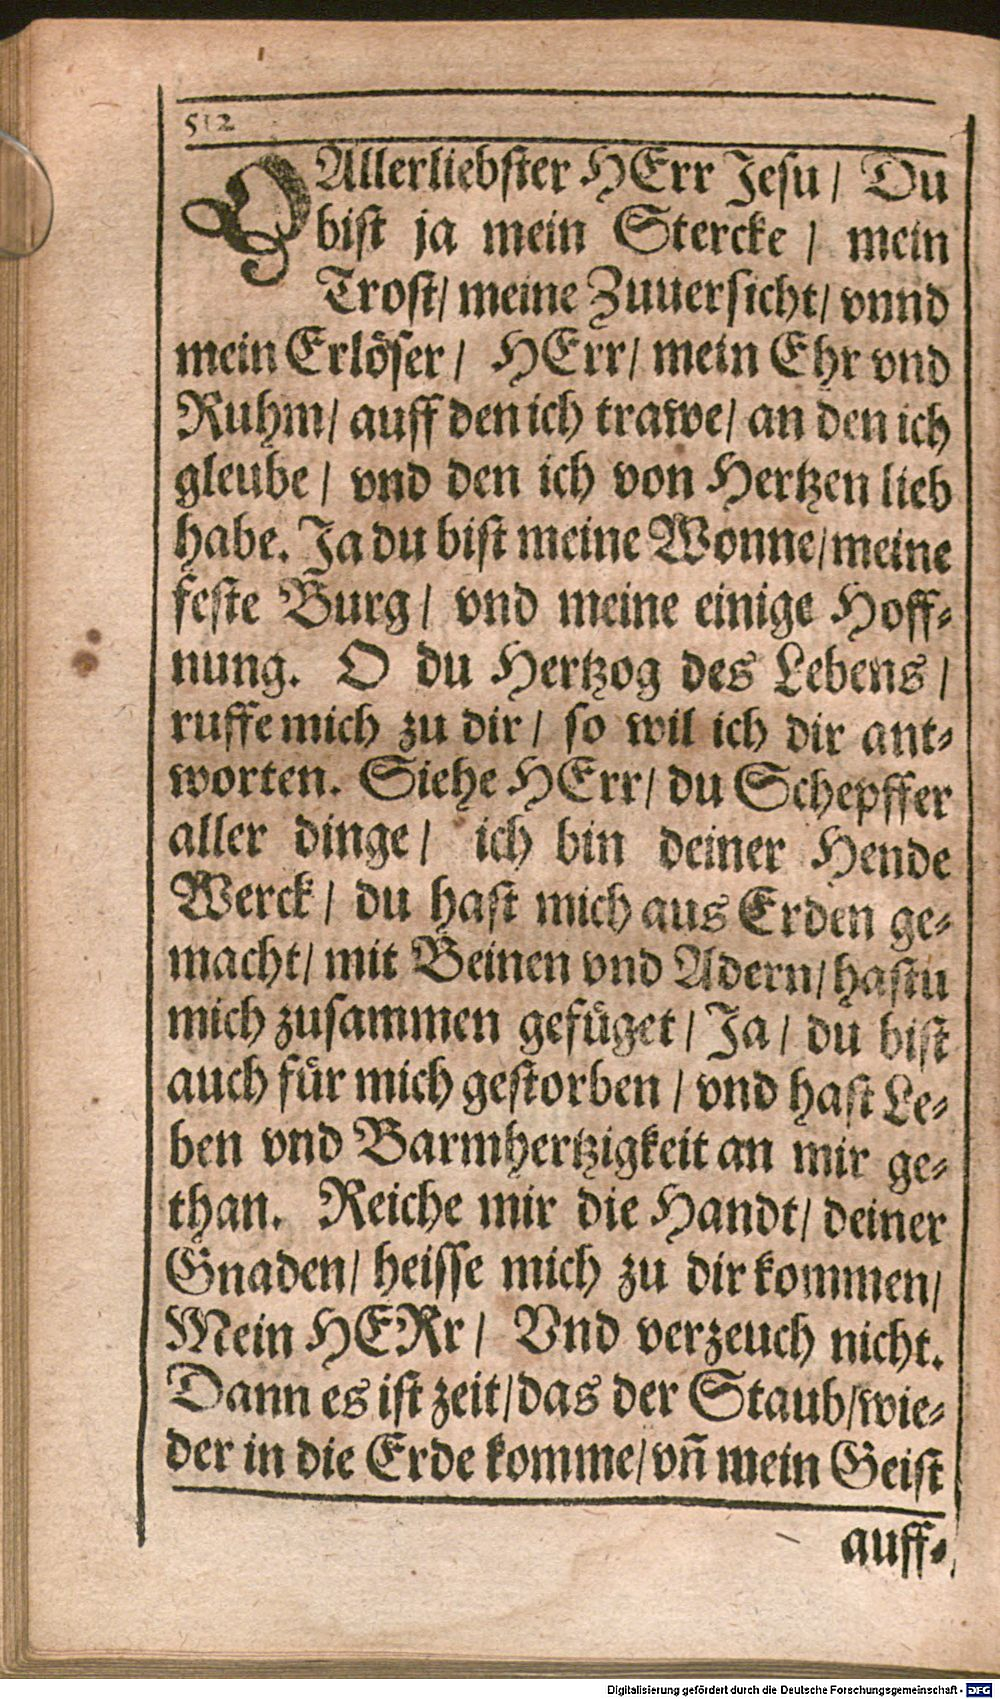 512
O Allerliebster HErr Jesu / Du
bist ja mein Stercke / mein
Trost / meine Zuuersicht / vnnd
mein Erlöser / HErr / mein Ehr vnd
Ruhm / auff den ich trawe / an den ich
gleube / vnd den ich von Hertzen lieb
habe. Ja du bist meine Wonne / meine
feste Burg / vnd meine einige Hoff-
nung. O du Hertzog des Lebens /
ruffe mich zu dir / so wil ich dir ant-
worten. Siehe HErr / du Schepffer
aller dinge / ich bin deiner Hende
Werck / du hast mich aus Erden ge-
macht / mit Beinen vnd Adern / hastu
mich zusammen gefüget / Ja / du bist
auch für mich gestorben / vnd hast Le-
ben vnd Barmhertzigkeit an mir ge-
than. Reiche mir die Handt / deiner
Gnaden / heisse mich zu dir kommen /
Mein HERr / Vnd verzeuch nicht.
Dann es ist zeit / das der Staub / wie-
der in die Erde komme / vn̄ mein Geist
auff-
Digitalisierung gefördert durch die Deutsche Forschungsgemeinschaft - DFG